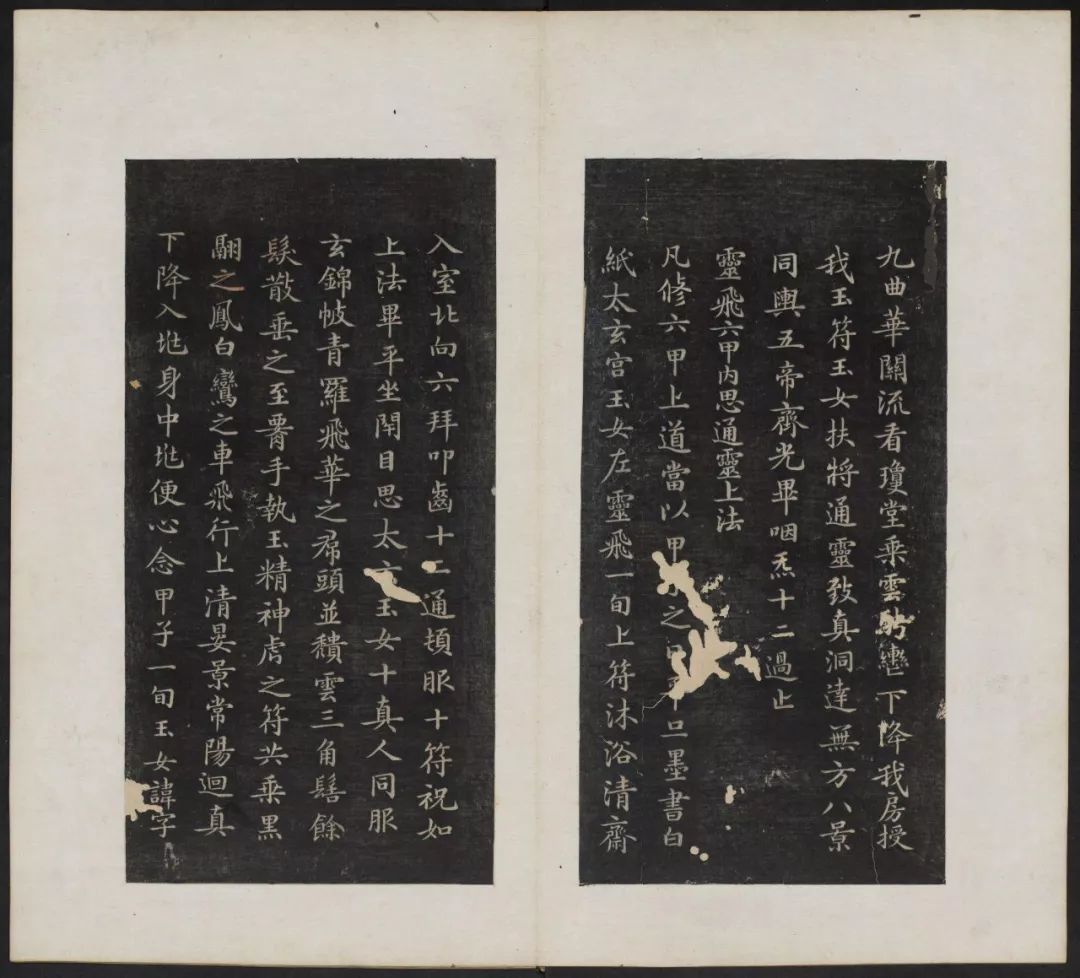 九曲華關流看瓊堂乘雲轡下降我房授
我玉符玉女扶將通靈致真洞達無方八景
同輿五帝齊光畢咽炁十二過止
靈飛六甲內思通靈上法
凡修六甲上道當以甲之日平旦墨書白
紙太玄宮玉女左靈飛一旬上符沐浴清齋
入室北向六拜叩齒十二通頓服十符祝如
上法畢平坐閉目思太玄玉女十真人同服
玄錦帔青羅飛華之帬頭並穨雲三角髻餘
髮散垂之至腰手執玉精神虎之符共乘黑
翮之鳳白鸞之車飛行上清晏景常陽迴真
下降入兆身中兆便心念甲子一旬玉女諱字